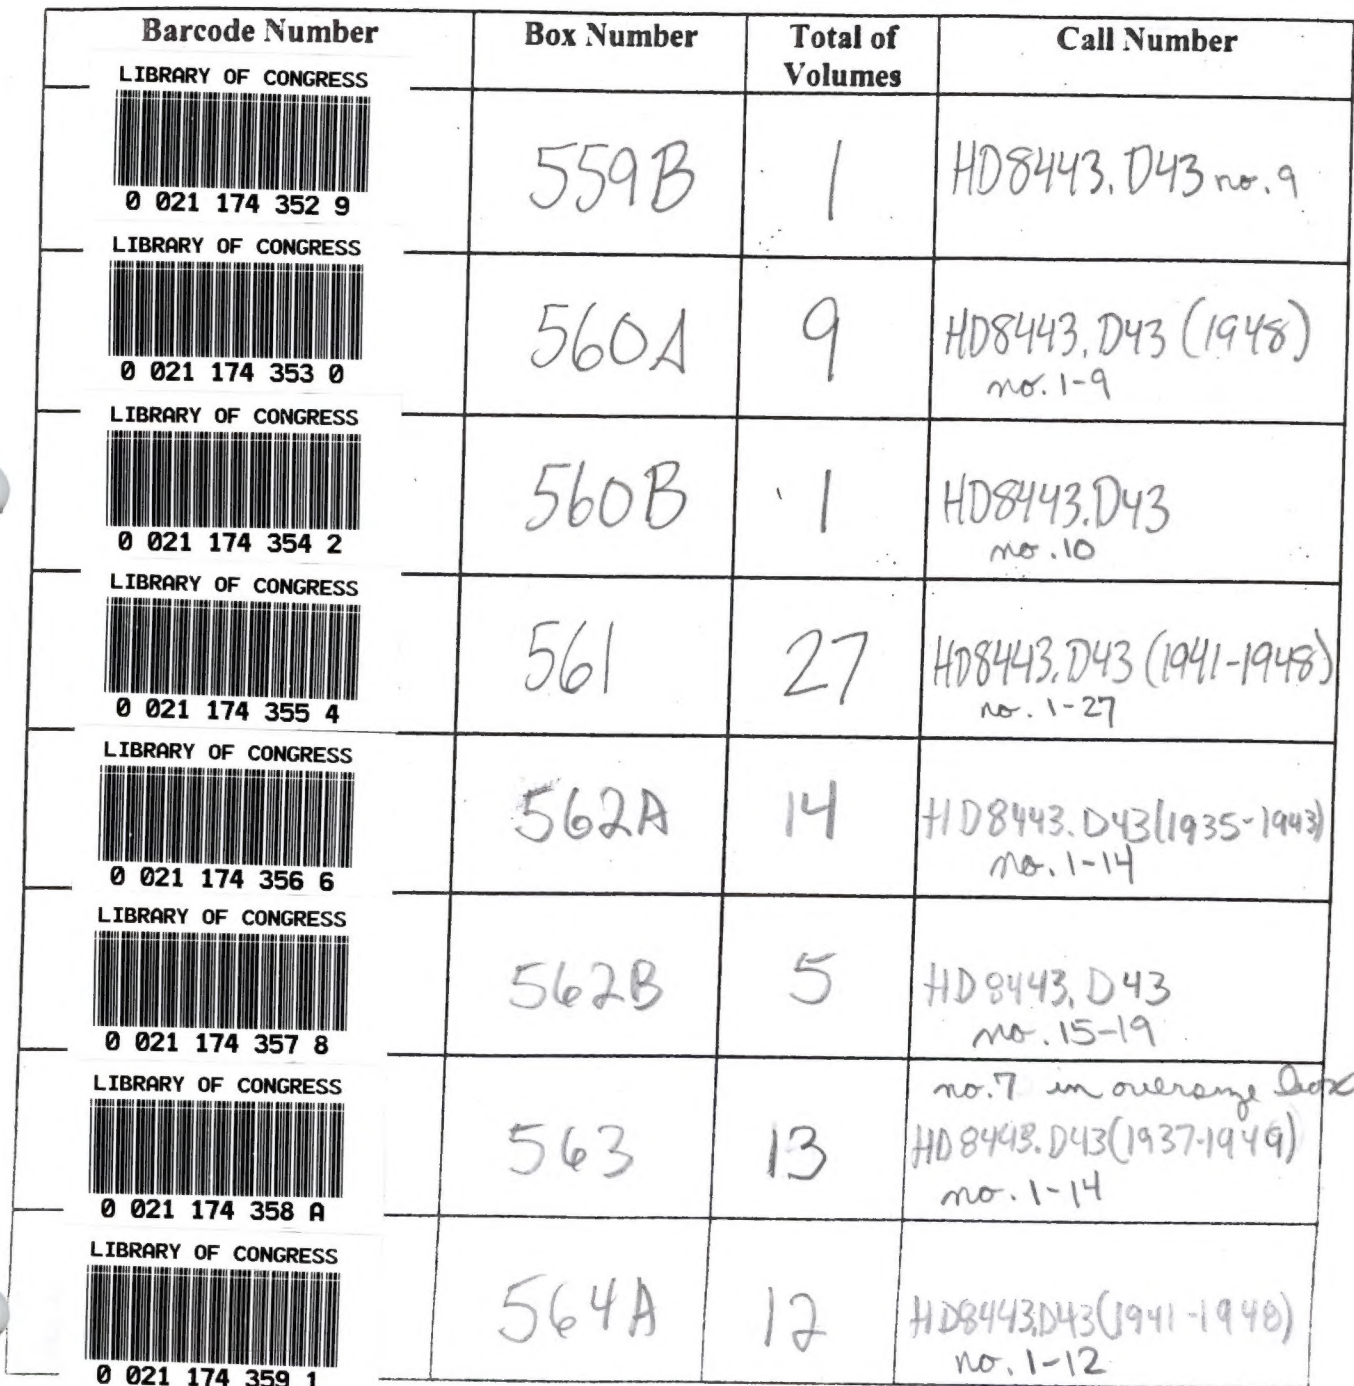 Barcode Number Box Number Total of Volumes Call Number
LIBRARY OF CONGRESS
0 021 174 352 9
559B 1 HD8443.D43 no.9
LIBRARY OF CONGRESS
0 021 174 353 0
560A 9 HD8443.D43 (1948)
no. 1-9
LIBRARY OF CONGRESS
0 021 174 354 2
560B 1 HD8443.D43
no.10
LIBRARY OF CONGRESS
0 021 174 355 4
561 27 HD8443.D43 (1941-1948)
no. 1-27
LIBRARY OF CONGRESS
0 021 174 356 6
562A 14 HD8443.D43(1935-1943)
no. 1-14
LIBRARY OF CONGRESS
0 021 174 357 8
562B 5 HD8443.D43
no. 15-19
LIBRARY OF CONGRESS
0 021 174 358 A
no.7 in oversize box
563 13 HD8443.D43(1937-1949)
no. 1-14
LIBRARY OF CONGRESS
0 021 174 359 1
564A 12 HD8443.D43(1941-1948)
no. 1-12